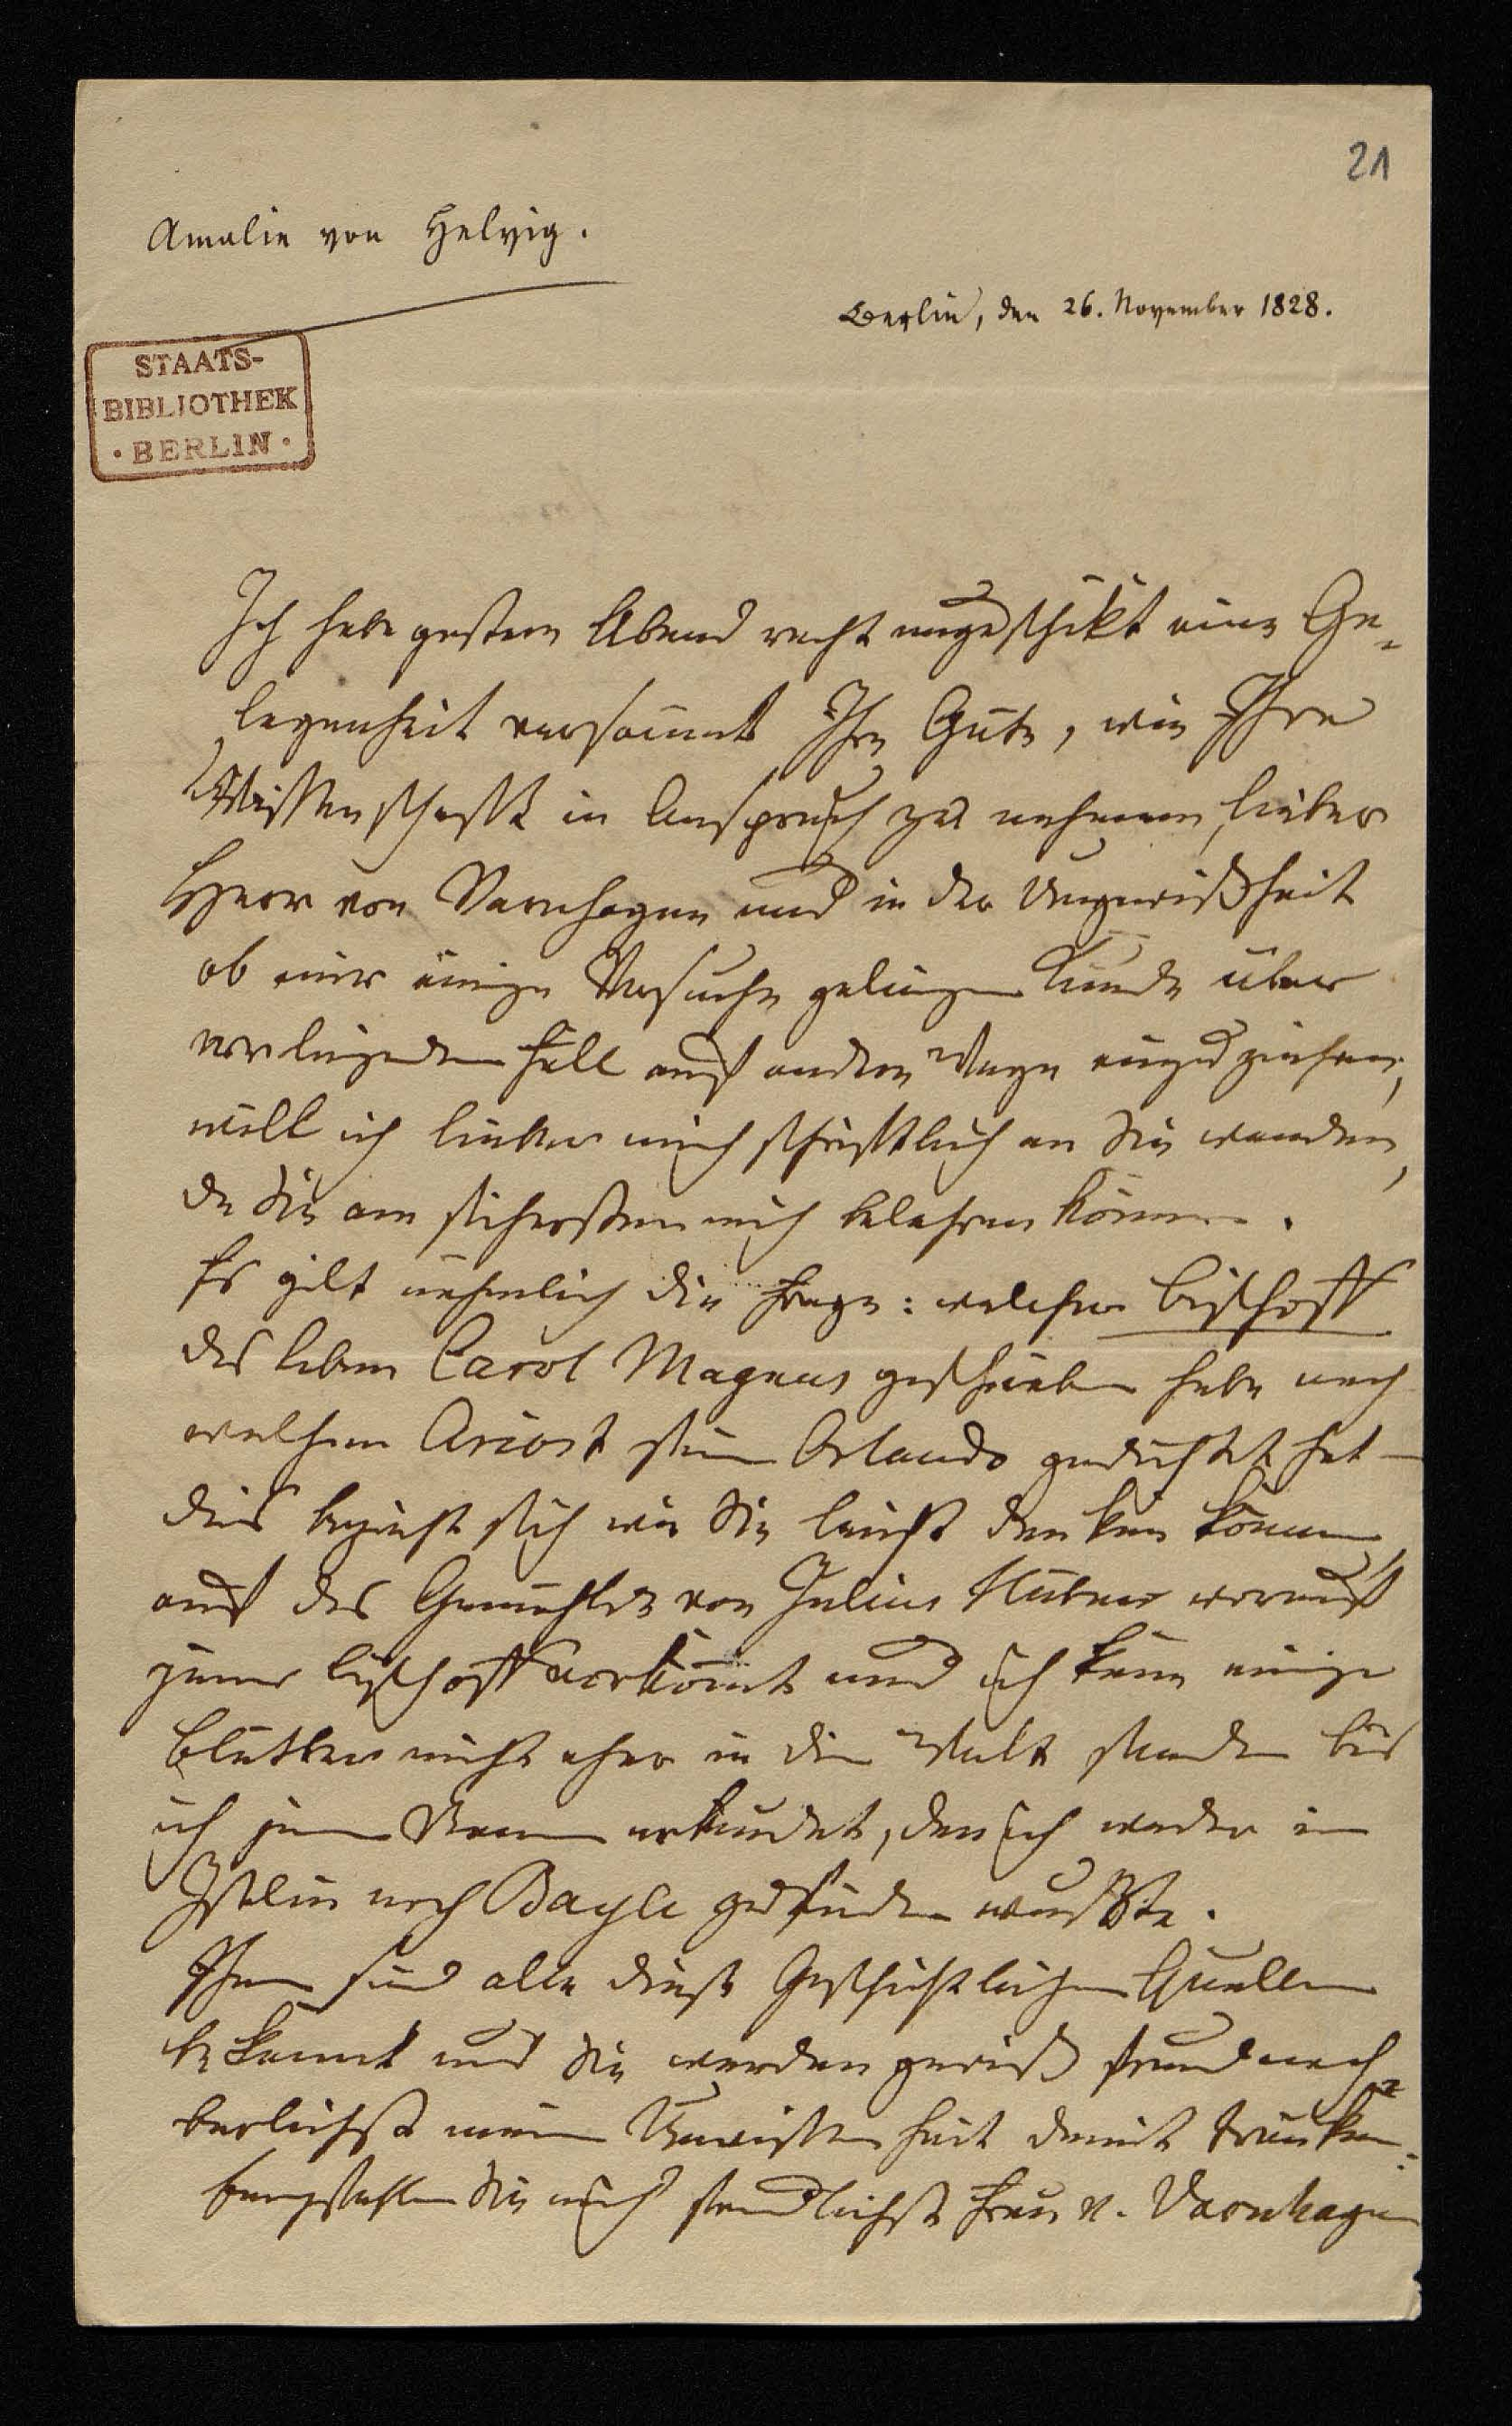 21
Amalie von Helvig.
Berlin, den 26. November 1828.
STAATS-
BIBLIOTHEK
· BERLIN ·
Ich habe gestern Abend recht ungeschikt eine Ge-
legenheit versäumt Ihre Güte, wie Ihre
Wissenschafft in Anspruch zu nehmen, lieber
Herr von Varnhagen und in der Ungewißheit
ob mir einige Versuche gelingen Kunde über
vorliegenden Fall auf andern Wege einzuziehen,
will ich lieber mich schriftlich an Sie wenden,
da Sie am sichersten mich belehren können.
Es gilt nehmlich die Frage: welcher Bischoff
das Leben Carol Magnus geschrieben habe nach
welchem Ariost sein Orlando gedichtet hat –
dies bezieht sich wie Sie leicht denken können
auf das Gemählde von Julius Hübner worauf
jener Bischoff vorkömt und ich kann einige
Blätter nicht eher in die Welt senden bis
ich jenen Namen erkundet, den ich weder im
Iselin noch Bayle zu finden wußte.
Ihnen sind alle diese Geschichtlichen Quellen
bekannt und Sie werden gewiß freundnach-
berlichst meine Unwissenheit damit tränken.
Empfehlen Sie mich freundlichst Frau v. Varnhagen